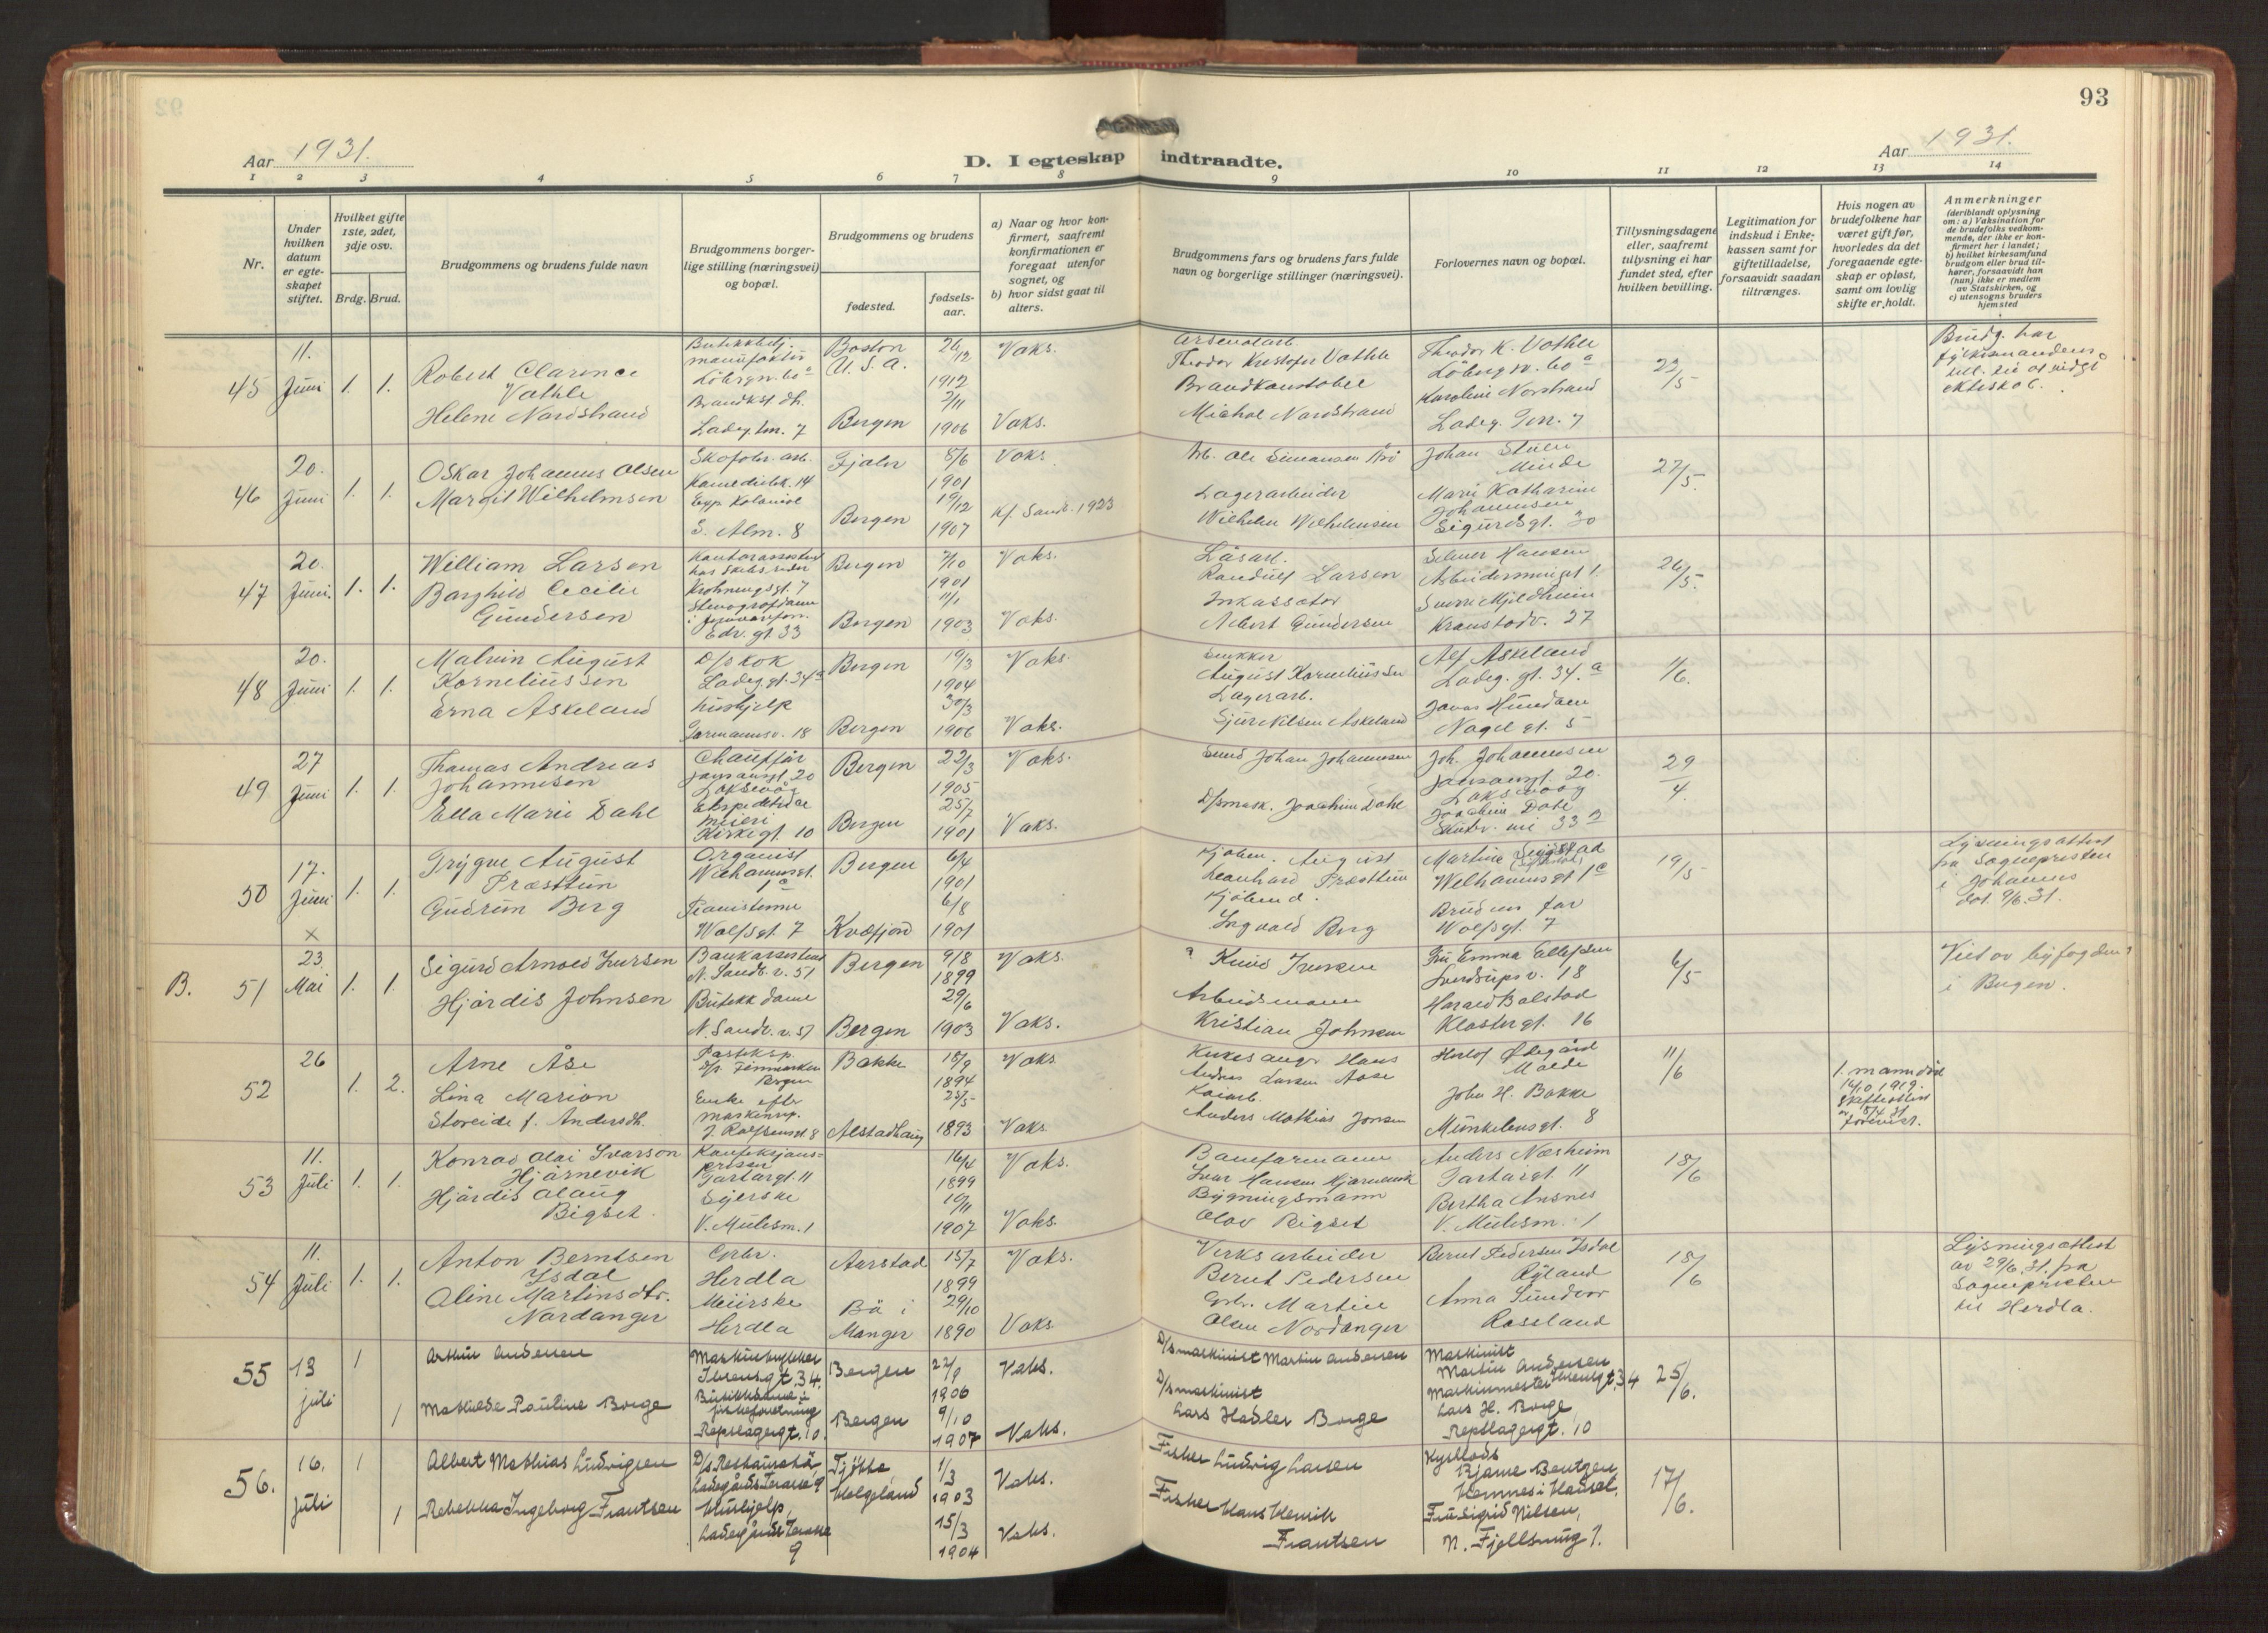 93
Aar 1931.
D. I egteskap indtraadte.
Aar 1931.
1 2 3 4 5 6 7 8 9 10 11 12 13 14
Nr.
Under hvilken datum er egteskapet stiftet.
Hvilket gifte 1ste, 2det, 3dje osv.
Brdg. Brud.
Brudgommens og brudens fulde navn
Brudgommens borgerlige stilling (næringsvei) og bopæl.
Brudgommens og brudens
fødested.
fødselsaar.
a) Naar og hvor konfirmert, saafremt konfirmationen er foregaat utenfor sognet, og
b) hvor sidst gaat til alters.
Brudgommens fars og brudens fars fulde navn og borgerlige stillinger (næringsvei).
Forlovernes navn og bopæl.
Tillysningsdagene eller, saafremt tillysning ei har fundet sted, efter hvilken bevilling.
Legitimation for indskud i Enkekassen samt for giftetilladelse, forsaavidt saadan tiltrænges.
Hvis nogen av brudefolkene har været gift før, hvorledes da det foregaaende egteskap er opløst, samt om lovlig skifte er holdt.
Anmerkninger
(deriblandt oplysning om: a) Vaksination for de brudefolks vedkommende, der ikke er konfirmert her i landet;
b) hvilket kirkesamfund brudgom eller brud tilhører, forsaavidt han (hun) ikke er medlem av Statskirken, og
c) utensogns bruders hjemsted
45
11. Juni
1. 1.
Robert Clarence
Vathle
Helene Nordstrand
Løbergsv. 60a
Ladeg. tm. 7
Boston
U. S. A.
Bergen
26/12
1912
2/11
1906
Vaks.
Vaks.
Theodor Kristofer Vathle
Brandkonstabel
Michal Nordstrand
Theodor K. Vathle
Løbergsv. 60a
Karoline Norstrand
Ladeg. Tm. 7
22/5
Brudg. har
46
20. Juni
1. 1.
Oskar Johannes Olsen
Margit Wilhelmsen
Komediebk. 14
S. Alm. 8
Fjaler
Bergen
8/6
1901
19/12
1907
Vaks
Kf. Sandv. 1923
Arb. Ole Simonsen
Lagerarbeider
Wilhelm Wilhelmsen
Johan Stulen
Minde
Marie Katharine
Johannesen
Sigurdsgt. 30
27/5.
47
20. Juni.
1. 1.
William Larsen
Borghild Cecilie
Gundersen
Kroningsgt. 7
Edv. gt. 33
Bergen
Bergen
7/10
1901
11/1
1903
Vaks.
Vaks.
Randulf Larsen
Inkassator
Albert Gundersen
Selmer Hansen
Sverre Mjeldheim
Kranstadv. 27
26/5.
48
20. Juni
1. 1.
Malvin August
Korneliussen
Erna Askeland
D/s kok
Ladeg gt. 34a
hushjelp
Formannsv. 18
Bergen
Bergen
19/3
1904
30/3
1906
Vaks.
Vaks.
August Korneliussen
Lagerarb.
Sjur Nilsen Askeland
Alf Askeland
Ladeg. gt. 34.a
Nagel gt. 5
1/6.
49
27 Juni
1. 1.
Thomas Andreas
Johannesen
Ella Marie Dahl
Chauffør
Laksevåg
Meieri
Kirkegt. 10
Bergen
Bergen
22/3
1905
25/7
1901
Vaks.
Vaks.
Smed Johan Johannesen
D/smask. Joachim Dahl
Joh. Johannesen
20.
Laksevaag
Joachim Dahl
29/4.
50
17. Juni
x
1. 1.
Trygve August
Præsttun
Gudrun Berg
Organist
Welhavensgt.
1c
Pianistinne
Wolfsgt. 7
Bergen
Kvæfjord
6/4
1901
6/8
1901
Kjøbm. August
Leonhard Præsttun
Kjøbmd.
Ingvald Berg
Welhavensgt 1c
Brudens far
Wolfsgt. 7
19/5
Lysningsattest
fra Sogneprsten
i Johannes
dat. 9/6.31.
B. 51
23. Mai
1. 1.
Sigurd Arnold Iversen
Hjørdis Johnsen
Bankassistent
N. Sandv. v. 51
Butikk dame
N. Sandv. v. 51
Bergen
Bergen
9/8
1899
29/6
1903
Vaks.
Vaks.
Knud Iversen
Arbeidsmann
Kristian Johnsen
Fru Emma Ellefsen
Sverdrupsv. 18
Harald Balstad
Klostergt. 16
6/5
Viet av byfogden
i Bergen.
52
26
1. 2.
Arne Åse
Lina Marion
Storeide f. Andersdt.
Posteksp.
Enke efter
maskinrep.
Bakke
Alstadhaug
18/9
1894
25/5
1893
Vaks
Vaks
Andreas Larsen Aase
Kaiarb.
Anders Mathias Jonsen
Herlof Ødegård
Molde
John H. Bakke
Munkebensgt. 8
11/6
1. mann død
16/10 1919.
Skifteattest
av 15/4 31
forevist.
53
11. Juli
1. 1.
Konrad Olai Ivarson
Hjärnevik
Hjørdis Olaug
Bigset.
Tartargt. 11
Syerske
V. Mulesm. 1
16/4
1899
10/11
1907
Vaks.
Vaks.
Banformann
Ivar Hansen Hjarnevik
Bygningsmann
Olav Bigset
Anders Næsheim
Tartargt. 11
Bertha Ansnes
V. Mulesm. 1
18/6
54
11. Juli
1. 1.
Anton Berntsen
Isdal
Oline Martinsdtr.
Nordanger
Grbr.
Herdla
Meierske
Herdla
Aarstad
Bö i
Manger
15/7
1899
29/10
1890
Vaks.
Vaks
Verksarbeider
Bernt Pedersen
Grbr. Martin
Olsen Nordanger
Bernt Pedersen Isdal
Ryland
Anna Sundvor
Rossland
18/6
Lysningsattest
av 29/6.31. fra
Sogneprsten
til Herdla.
55
13 juli
1
1
Arthur Andersen
Mathilde Pauline Borge
Maskinbygger
Ibsensgt. 34.
Butikkdame i
fiskeforretning
Repslagergt. 10.
Bergen
Bergen
22/8
1906
9/10
1907
Vaks.
Vaks.
D/smaskinist Martin Andersen
D/smaskinist
Lars Hadler Borge
Maskinist
Martin Andersen
Maskinmester Ibsensgt. 34
Lars H. Borge
Repslagergt. 10
25/6.
56.
16. juli
1
1
Albert Mathias Ludvigsen
Rebekka Ingeborg Frantsen
D/s. Restauratør,
Ladegårds Terasse 9
Hushjelp,
Ladegårds Terasse
9
Tjøtta
Helgeland
1/3
1903
15/3
1904
Vaks.
Vaks.
Fisker Ludvig Larsen
Fisker Hans Henrik
Frantsen
Kystlods
Bjarne Bentzen,
Hemnes i Hadsel,
Fru Sigrid Nilsen,
N. Fjellsmug 7.
17/6.